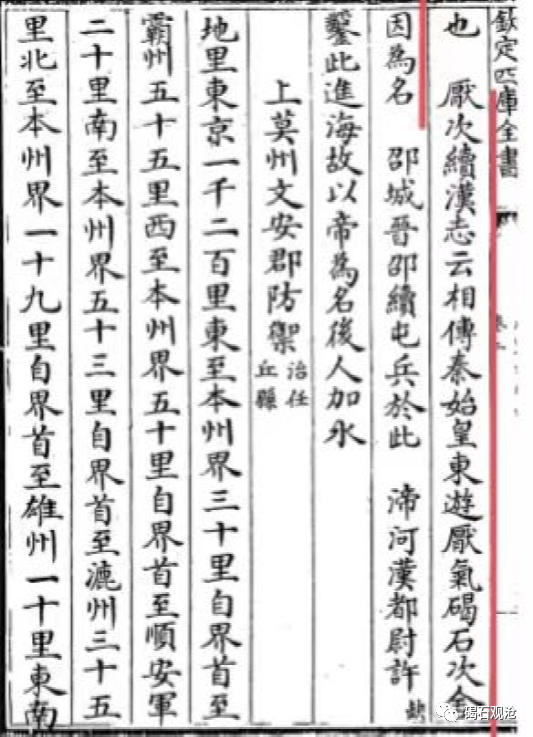 欽定四庫全書
也　厭次續漢志云相傳秦始皇東遊厭氣碣石次舍
因為名　邵城晉邵續屯兵於此　渧河漢都尉許
鑿此進海故以帝為名後人加水
上莫州文安郡防禦治任丘縣
地里東京一千二百里東至本州界三十里自界首至
霸州五十五里西至本州界五十里自界首至順安軍
二十里南至本州界五十三里自界首至瀛州三十五
里北至本州界一十九里自界首至雄州一十里東南
碣石观沧